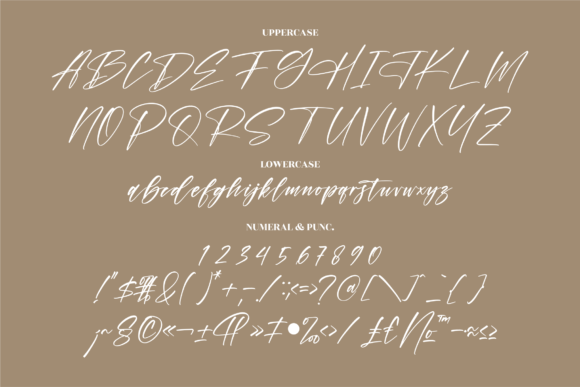 UPPERCASE
ABCDEFGHIJKLM
NOPQRSTUVWXYZ
LOWERCASE
abcdefghijklmnopqrstuvwxyz
NUMERAL & PUNC.
1 2 3 4 5 6 7 8 9 0
!"$#%&()*+,-./:;<=>?@[\]_{}
¡~§©«¬±¶»‡•‰‹›/£€№™−≈≤≥